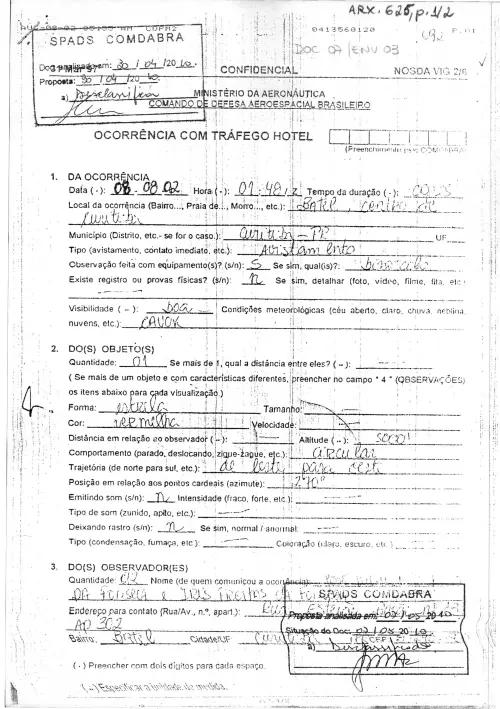 ARX. 625, p. 1/2
0413560120
P. 01
SPADS COMDABRA
DOC 07 / ENV 03
092
em: 30 / 04 / 20 10
CONFIDENCIAL
NOSDA VIG 2/6
Proposta: 30 / 04 / 20 10
a) Desclassifica
MINISTÉRIO DA AERONÁUTICA
COMANDO DE DEFESA AEROESPACIAL BRASILEIRO
OCORRÊNCIA COM TRÁFEGO HOTEL
(Preenchimento pelo COMDABRA)
1. DA OCORRÊNCIA
Data (-): 08-08-02 Hora (-): 01:48 z Tempo da duração (-):
Local da ocorrência (Bairro..., Praia de..., Morro..., etc.): BATEL, centro de
Curitiba
Município (Distrito, etc.-se for o caso.): Curitiba - PR UF
Tipo (avistamento, contato imediato, etc.): Avistamento
Observação feita com equipamento(s)? (s/n): S Se sim, qual(is)?: binóculo
Existe registro ou provas físicas? (s/n): N Se sim, detalhar (foto, vídeo, filme, fita, etc.):
Visibilidade ( - ): BOA Condições meteorológicas (céu aberto, claro, chuva, neblina,
nuvens, etc.): CAVOK
2. DO(S) OBJETO(S)
Quantidade: 01 Se mais de 1, qual a distância entre eles? ( - ):
( Se mais de um objeto e com características diferentes, preencher no campo " 4 " (OBSERVAÇÕES)
os itens abaixo para cada visualização.)
Forma: estrela Tamanho:
Cor: vermelha Velocidade:
Distância em relação ao observador ( - ): Altitude ( - ): 5000'
Comportamento (parado, deslocando, zigue-zague, etc.): circular
Trajetória (de norte para sul, etc.): de leste para oeste
Posição em relação aos pontos cardeais (azimute): 270º
Emitindo som (s/n): N Intensidade (fraco, forte, etc.):
Tipo de som (zunido, apito, etc.):
Deixando rastro (s/n): N Se sim, normal / anormal:
Tipo (condensação, fumaça, etc.): Coloração (claro, escuro, etc.)
3. DO(S) OBSERVADOR(ES)
Quantidade: 02 Nome (de quem comunicou a ocorrência):
DA FONSECA E IRIS FREITAS DA
Endereço para contato (Rua/Av., n.º, apart.):
AP 302
Bairro: Batel Cidade/UF
SPADS COMDABRA
Proposta analisada em: 03 / 05 / 2010
Situação do Doc: 03 / 05 20 10
a) Desclassificado
( - ) Preencher com dois dígitos para cada espaço.
( - ) Especificar a unidade de medida.